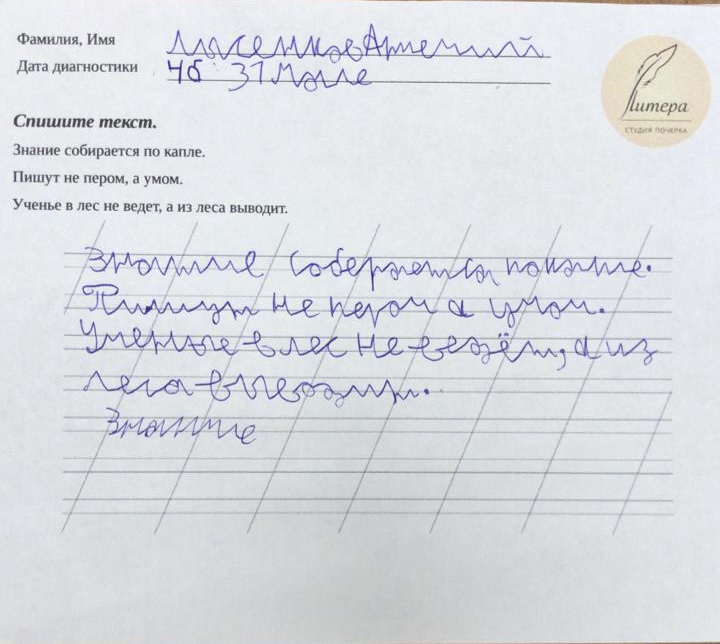 Фамилия, Имя Лысенков Артемий
Дата диагностики 4б 31 Мале
Литера
СТУДИЯ ПОЧЕРКА
Спишите текст.
Знание собирается по капле.
Пишут не пером, а умом.
Ученье в лес не ведет, а из леса выводит.
Знание соберается покапле.
Пишут не пером а умом.
Ученье в лес не ведёт, а из
леса выводит.
Знание